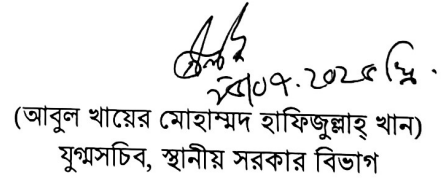 ২৪/০৭.২০২৫ খ্রি.
(আবুল খায়ের মোহাম্মদ হাফিজুল্লাহ্ খান)
যুগ্মসচিব, স্থানীয় সরকার বিভাগ